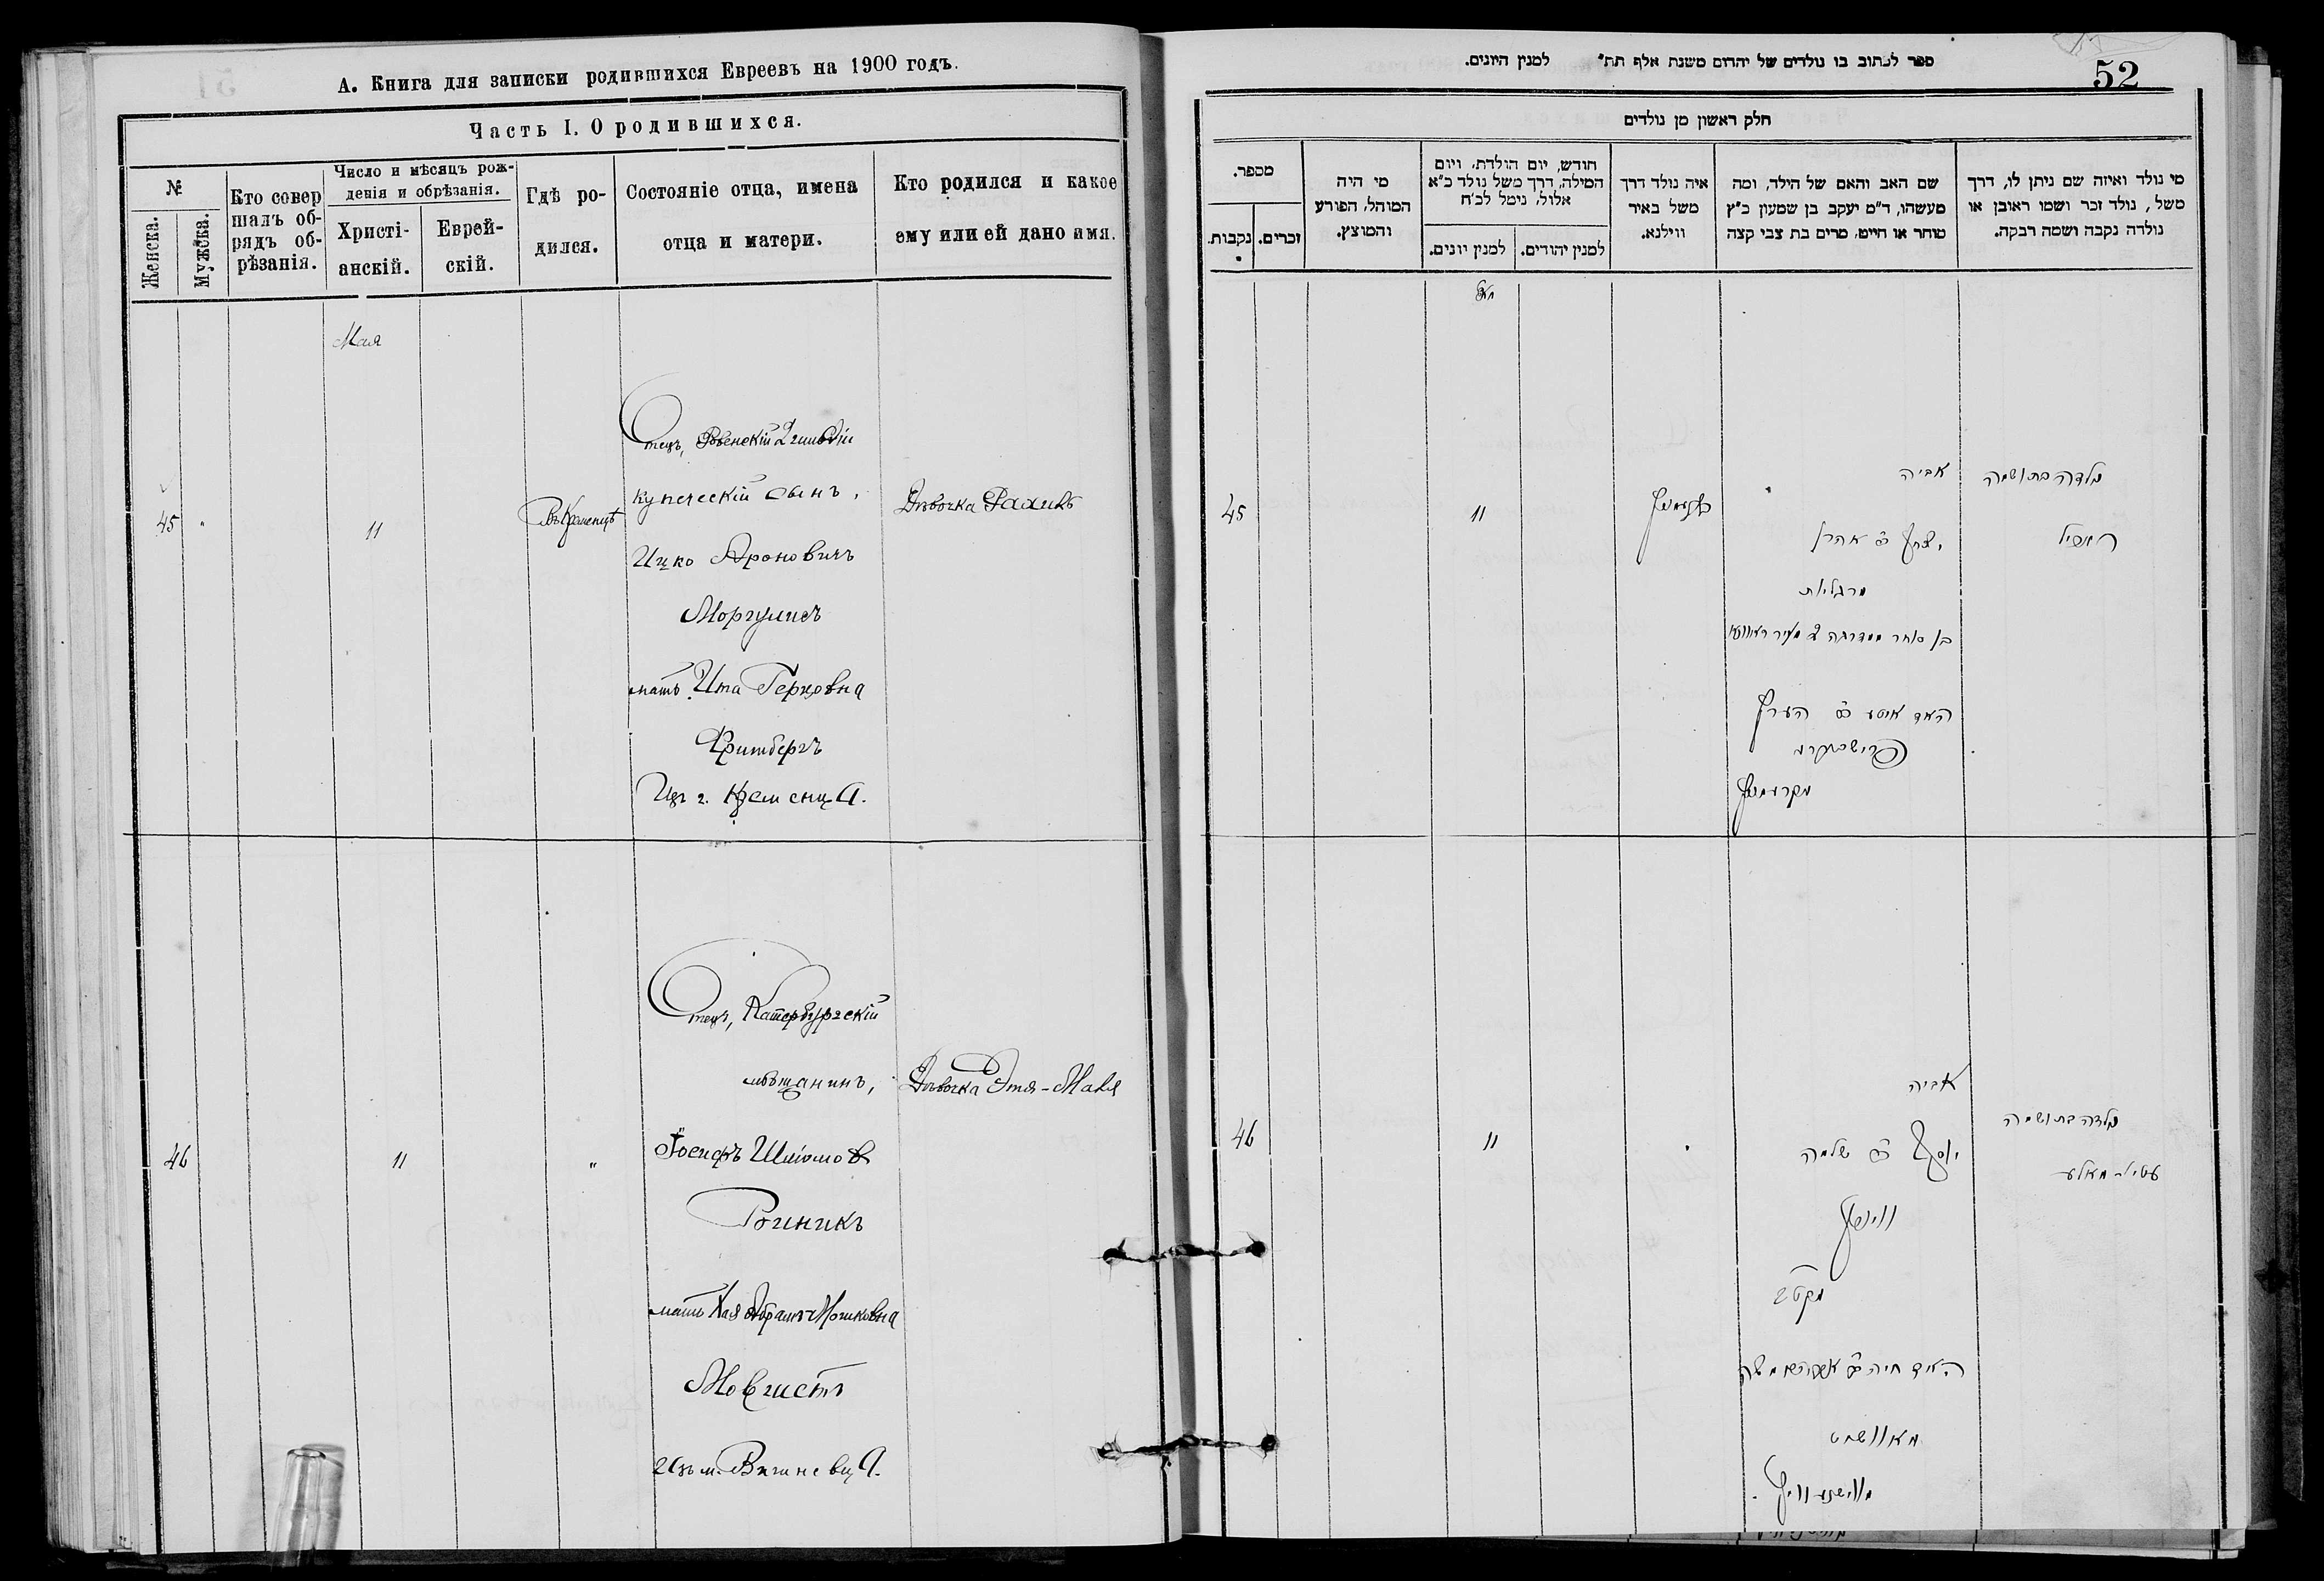 А. Книга для записки родившихся Евреевъ на 1900 годъ.
Часть I. О родившихся.
№
Женска.
Мужска.
Кто совер
шалъ об-
рядъ об-
рѣзанія.
Число и мѣсяцъ рож-
денія и обрѣзанія.
Христі-
анскій.
Еврей-
скій.
Гдѣ ро-
дился.
Состояніе отца, имена
отца и матери.
Кто родился и какое
ему или ей дано имя.
Мая
45
11
Въ Кременцѣ
Отецъ, Ровенскій 2 гильдіи
купеческій сынъ,
Ицко Ароновичъ
Моргулисъ
мать Ита Герцовна
Из г. Кременца.
Дѣвочка Рахиль
46
11
"
Отецъ, Катербургскій
мѣщанинъ,
Іосифъ Шліомов
мать Хая Абрамъ Мошковна
Изъ м. Вишневца.
Дѣвочка Этя-Маля
ספר לכתוב בו נולדים של יהדום משנת אלף תת" למנין היונים.
52
חלק ראשון מן נולדים
מספר.
נקבות.
זכרים.
מי היה
המוהל, הפורע
והמוצץ.
חודש, יום הולדת, ויום
המילה, דרך משל נולד כ"א
אלול, נימל לכ"ח
למנין יונים.
למנין יהודים.
איה נולד דרך
משל באיר
ווילנא.
שם האב והאם של הילד, ומה
מעשהו, ד"מ יעקב בן שמעון כ"ץ
סוחר או חייט, מרים בת צבי קצה
מי נולד ואיזה שם ניתן לו, דרך
משל, נולד זכר ושמו ראובן או
נולדה נקבה ושמה רבקה.
מאי
45
11
אביה
יצחק ב אהרן
מרגליות
האם איטא ב הערץ
מקרעמניץ
ילדה בת ושמה
46
11
אביה
יוסף ב שלמה
ילדה בת ושמה
עטיל-מאלע